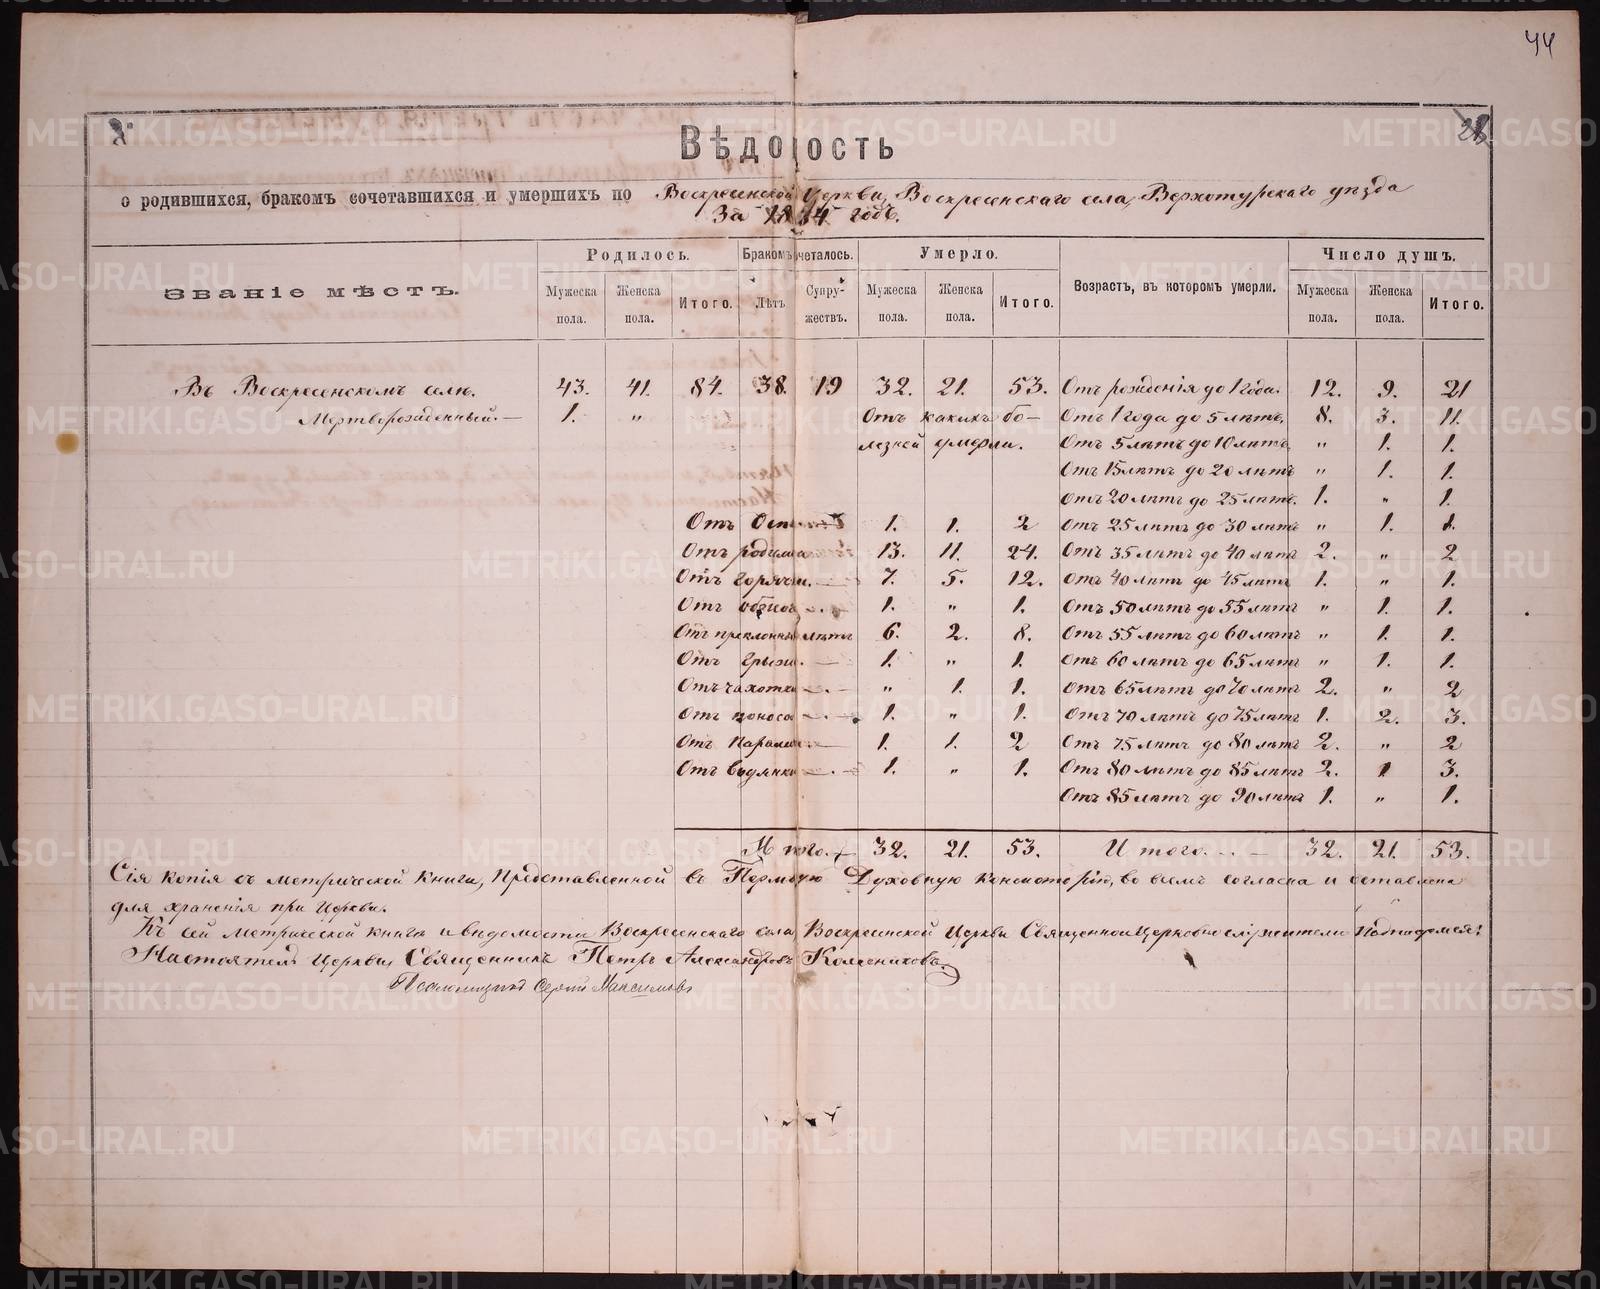 44
28
Вѣдомость
о родившихся, бракомъ сочетавшихся и умершихъ по Воскресенской Церкви, Воскресенскаго села, Верхотурскаго уѣзда
За годъ.
Званіе мѣстъ. Родилось. Бракомъ сочеталось. Умерло. Возрастъ, въ которомъ умерли. Число душъ.
Мужеска пола. Женска пола. Итого. Лѣтъ Супружествъ. Мужеска пола. Женска пола. Итого. Мужеска пола. Женска пола. Итого.
Въ Воскресенскомъ селѣ. 43. 41. 84. 38. 19 32. 21. 53. Отъ рожденія до 1 года. 12. 9. 21
Мертворожденный. — 1. „ Отъ какихъ бо- Отъ 1 года до 5 лѣтъ. 8. 3. 11.
лезней умерли. Отъ 5 лѣтъ до 10 лѣтъ „ 1. 1.
Отъ 15 лѣтъ до 20 лѣтъ „ 1. 1.
Отъ 20 лѣтъ до 25 лѣтъ. 1. „ 1.
Отъ 1. 1. 2 Отъ 25 лѣтъ до 30 лѣтъ „ 1. 1.
Отъ родимца 13. 11. 24. Отъ 35 лѣтъ до 40 лѣтъ 2. „ 2
Отъ горячки. — 7. 5. 12. Отъ 40 лѣтъ до 45 лѣтъ 1. „ 1.
Отъ 1. „ 1. Отъ 50 лѣтъ до 55 лѣтъ „ 1. 1.
Отъ преклонныхъ лѣтъ 6. 2. 8. Отъ 55 лѣтъ до 60 лѣтъ „ 1. 1.
Отъ грыжи. — 1. „ 1. Отъ 60 лѣтъ до 65 лѣтъ „ 1. 1.
Отъ чахотки — „ 1. 1. Отъ 65 лѣтъ до 70 лѣтъ 2. „ 2
Отъ поноса — 1. „ 1. Отъ 70 лѣтъ до 75 лѣтъ 1. 2. 3.
Отъ 1. 1. 2 Отъ 75 лѣтъ до 80 лѣтъ 2. „ 2
Отъ водянки — 1. „ 1. Отъ 80 лѣтъ до 85 лѣтъ 2. 1 3.
Отъ 85 лѣтъ до 90 лѣтъ 1. „ 1.
Итого. 32. 21. 53. Итого. — 32. 21. 53.
Сія копія съ метрической книги, представленной въ Пермскую Духовную Консисторію, во всемъ согласна и оставлена
для храненія при Церкви.
Къ сей метрической книгѣ и вѣдомости Воскресенскаго села Воскресенской Церкви Священноцерковнослужители подписуемся:
Настоятель Церкви, Священникъ Петръ Александровъ Колесниковъ.
Псаломщикъ Сергій Максимовъ
METRIKI.GASO-URAL.RU